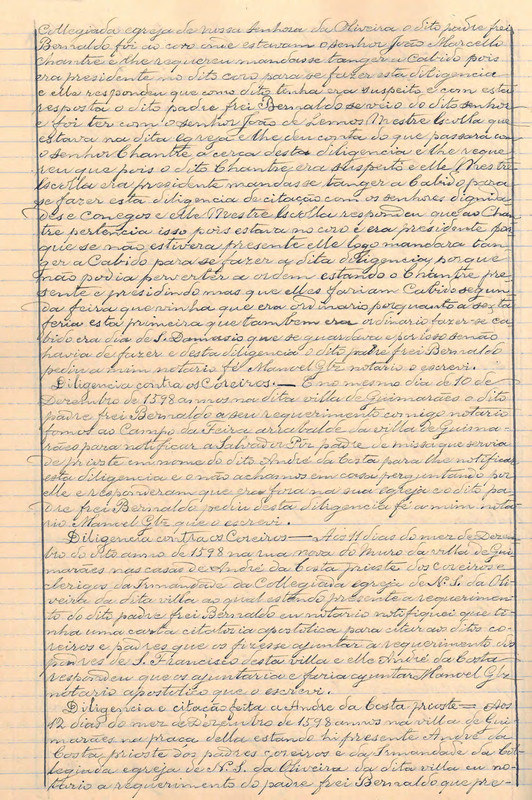 Collegiada egreja de nossa senhora da Oliveira o dito padre frei
Bernaldo foi ao coro onde estavam o senhor João Marcello
chantre e lhe requereu mandasse tanger a Cabido pois
era presidente no dito coro para se fazer esta diligencia
e elle respondeu que como dito tenha era suspeito e com esta
resposta o dito padre frei Bernaldo se veio do dito senhor
e foi ter com o senhor João de Lemos Mestre Escolla que
estava na dita egreja e lhe deu conta do que passara com
o senhor Chantre á cerca desta diligencia e lhe reque-
reu que pois o dito Chantre era suspeito e elle Mestre
Escolla era presidente mandasse tanger a Cabido para
se fazer esta diligencia de citação com os senhores dignida-
des e conegos e elle Mestre Escolla respondeu que ao Chan-
tre pertencia isso pois estava no coro e era presidente por
que se não estivera presente elle logo mandara tan-
ger a Cabido para se fazer a dita diligencia, porque
não podia perverter a ordem estando o Chantre pre-
sente e presidindo mas que elles fariam Cabido segun-
da feira que vinha que era ordinario porquanto a sexta
feria esta primeira que tambem era ordinario fazer-se ca-
bido era dia de S. Damasio que se guardava e por isso se não
havia de fazer e desta diligencia o dito padre frei Bernaldo
pediu a mim notario fé Manoel Glz notario o escrevi.
Diligencia contra os Coreiros. — E no mesmo dia de 10 de
Dezembro de 1598 annos na dita villa de Guimarães o dito
padre frei Bernaldo a seu requerimento comigo notario
fomos ao Campo da Feira arrabalde da villa de Guima-
rães para notificar a Salvador Piz padre de missa que servia
de prioste em nome do dito André da Costa para lhe notificar
esta diligencia e o não achamos em casa perguntando por
elle e responderam que era fora na sua egreja e o dito pa-
dre frei Bernaldo pediu desta diligencia fé a mim nota-
rio Manuel Glz que o escrevi.
Diligencia contra os Coreiros — Aos 11 dias do mez de Dezem-
bro do dito anno de 1598 na rua nova do Muro da villa de Gui-
marães nas casas de André da Costa prioste dos coreiros e
clerigos da Irmandade da Collegiada egreja de N. S. da Oli-
veira da dita villa ao qual estando presente a requerimento
do dito padre frei Bernaldo eu notario notifiquei que ti-
nha uma carta citatoria apostolica para citar ao dito co-
reiros e padres que os fizesse ajuntar a requerimento dos
padres de S. Francisco desta villa e elle André da Costa
respondeu que os ajuntaria e faria ajuntar Manoel Glz
notario apostolico que o escrevi.
Diligencia e citação feita a Andre da Costa prioste — Aos
12 dias do mez de Dezembro de 1598 annos na villa de Gui-
marães na praça della estando hi presente André da
Costa prioste dos padres coreiros e da Irmandade da Col-
legiada egreja de N. S. da Oliveira da dita villa eu no-
tario a requerimento do padre frei Bernaldo que pre-